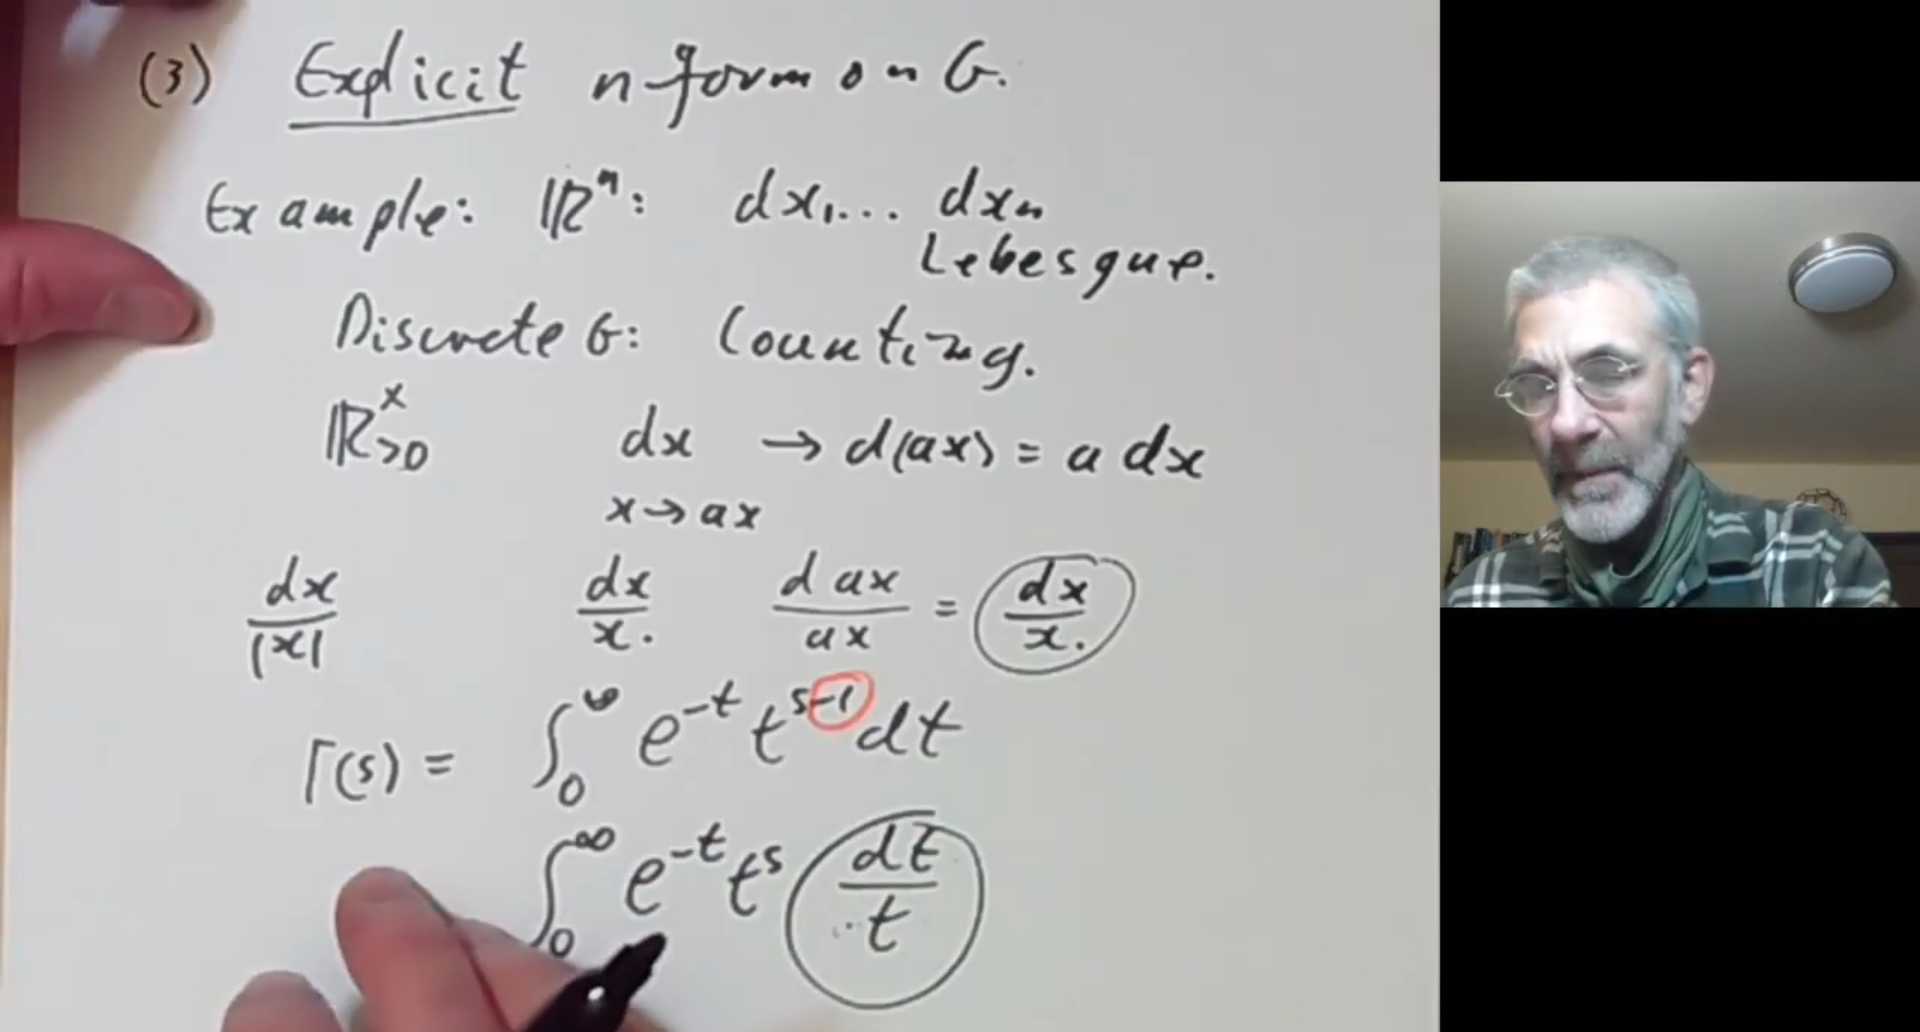 (3) Explicit n-form on G.
Example: ℝⁿ: dx₁... dxₙ
Lebesgue.
Discrete G: Counting.
ℝ^×_{>0} dx → d(ax) = a dx
x → ax
dx/|x| dx/x. d ax/ax = dx/x.
Γ(s) = ∫₀^∞ e^{-t} t^{s-1} dt
∫₀^∞ e^{-t} t^s dt/t